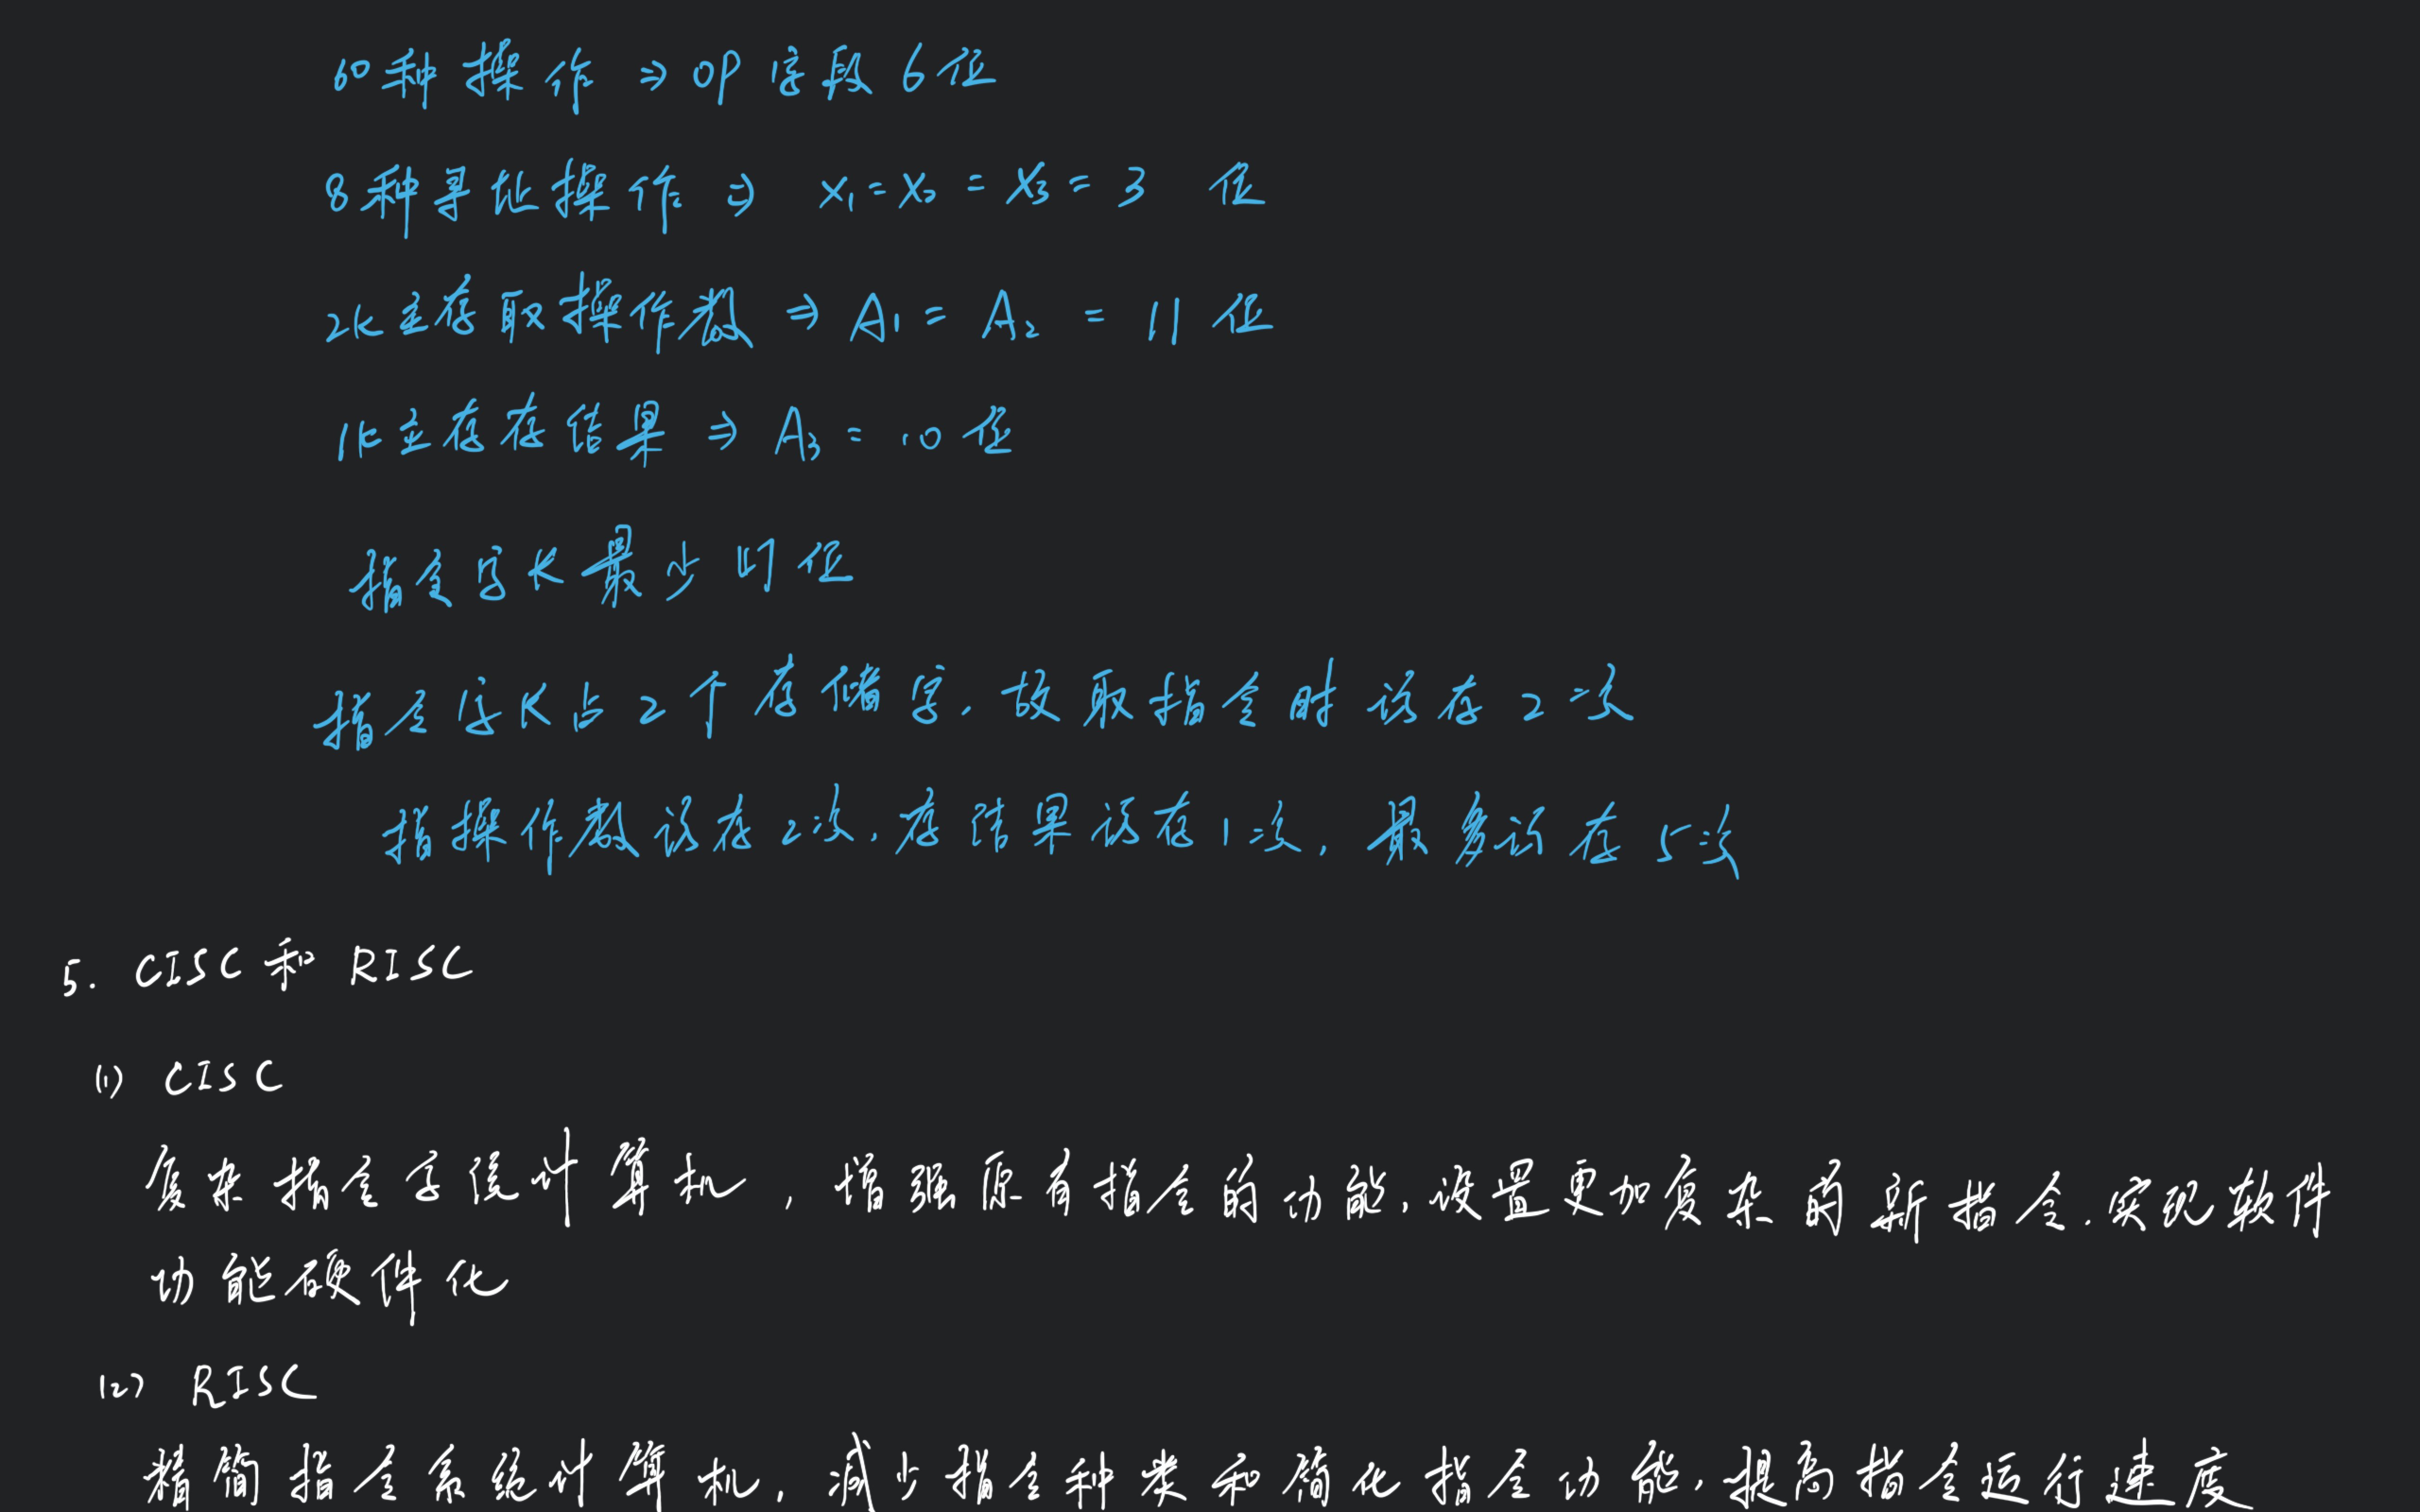 60种操作 ⇒ OP字段6位
8种寻址操作 ⇒ X₁=X₂=X₃=3 位
2K主存取操作数 ⇒ A₁=A₂=11位
1K主存存结果 ⇒ A₃=10位
指令字长最少47位
指令字长占2个存储字,故取指令时访存2次
指操作数访存2次,存结果访存1次,最多访存5次
5. CISC和RISC
(1) CISC
复杂指令字统计算机,增强原有指令的功能,设置更加复杂的新指令.实现软件
功能硬件化
(2) RISC
精简指令系统计算机,减少指令种类和简化指令功能,提高指令运行速度